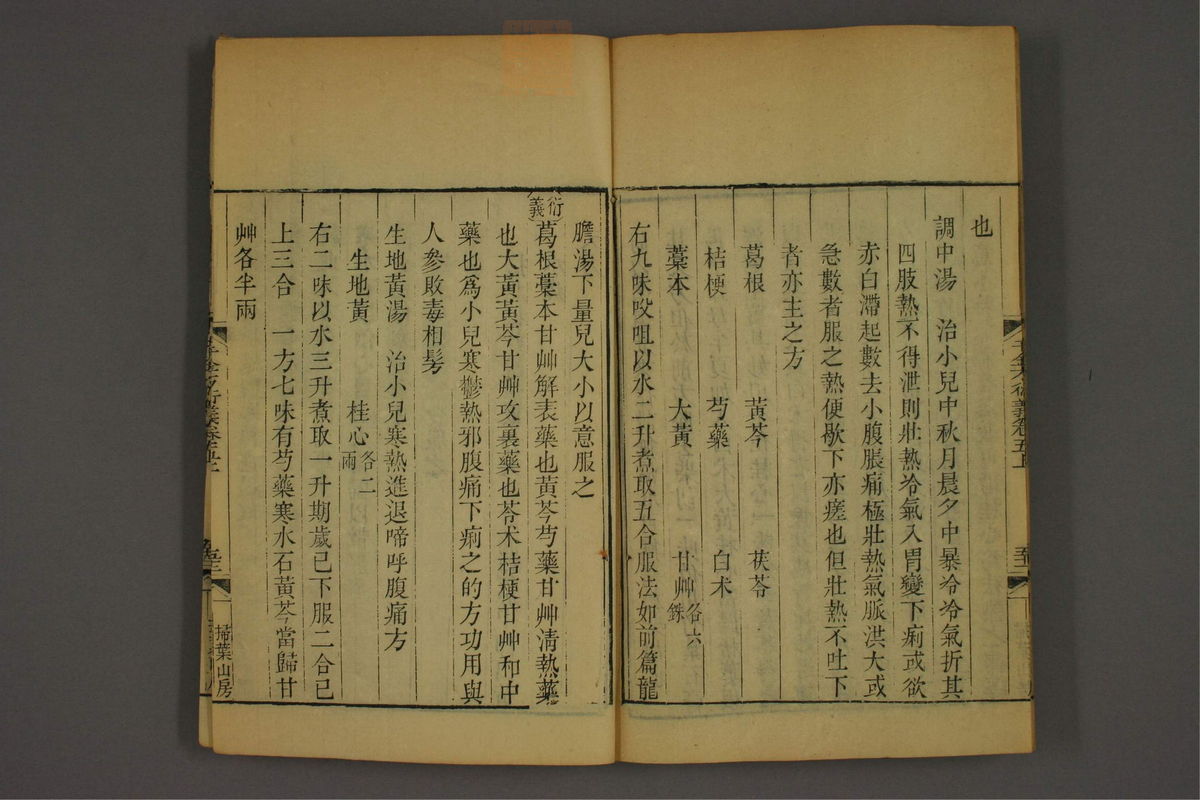 也
調中湯 治小兒中秋月晨夕中暴冷冷氣折其
四肢熱不得泄則壯熱冷氣入胃變下痢或欲
赤白滯起數去小腹脹痛極壯熱氣脈洪大或
急數者服之熱便歇下亦瘥也但壯熱不吐下
者亦主之方
葛根 黃芩 茯苓
桔梗 芍藥 白朮
藁本 大黃 甘艸各六銖
右九味㕮咀以水二升煮取五合服法如前篇龍
膽湯下量兒大小以意服之
衍義 葛根藁本甘艸解表藥也黃芩芍藥甘艸清熱藥
也大黃黃芩甘艸攻裏藥也苓朮桔梗甘艸和中
藥也爲小兒寒鬱熱邪腹痛下痢之的方功用與
人參敗毒相髣
生地黃湯 治小兒寒熱進退啼呼腹痛方
生地黃 桂心各二兩
右二味以水三升煮取一升期歲已下服二合已
上三合 一方七味有芍藥寒水石黃芩當歸甘
艸各半兩
千金方衍義卷五上
掃葉山房